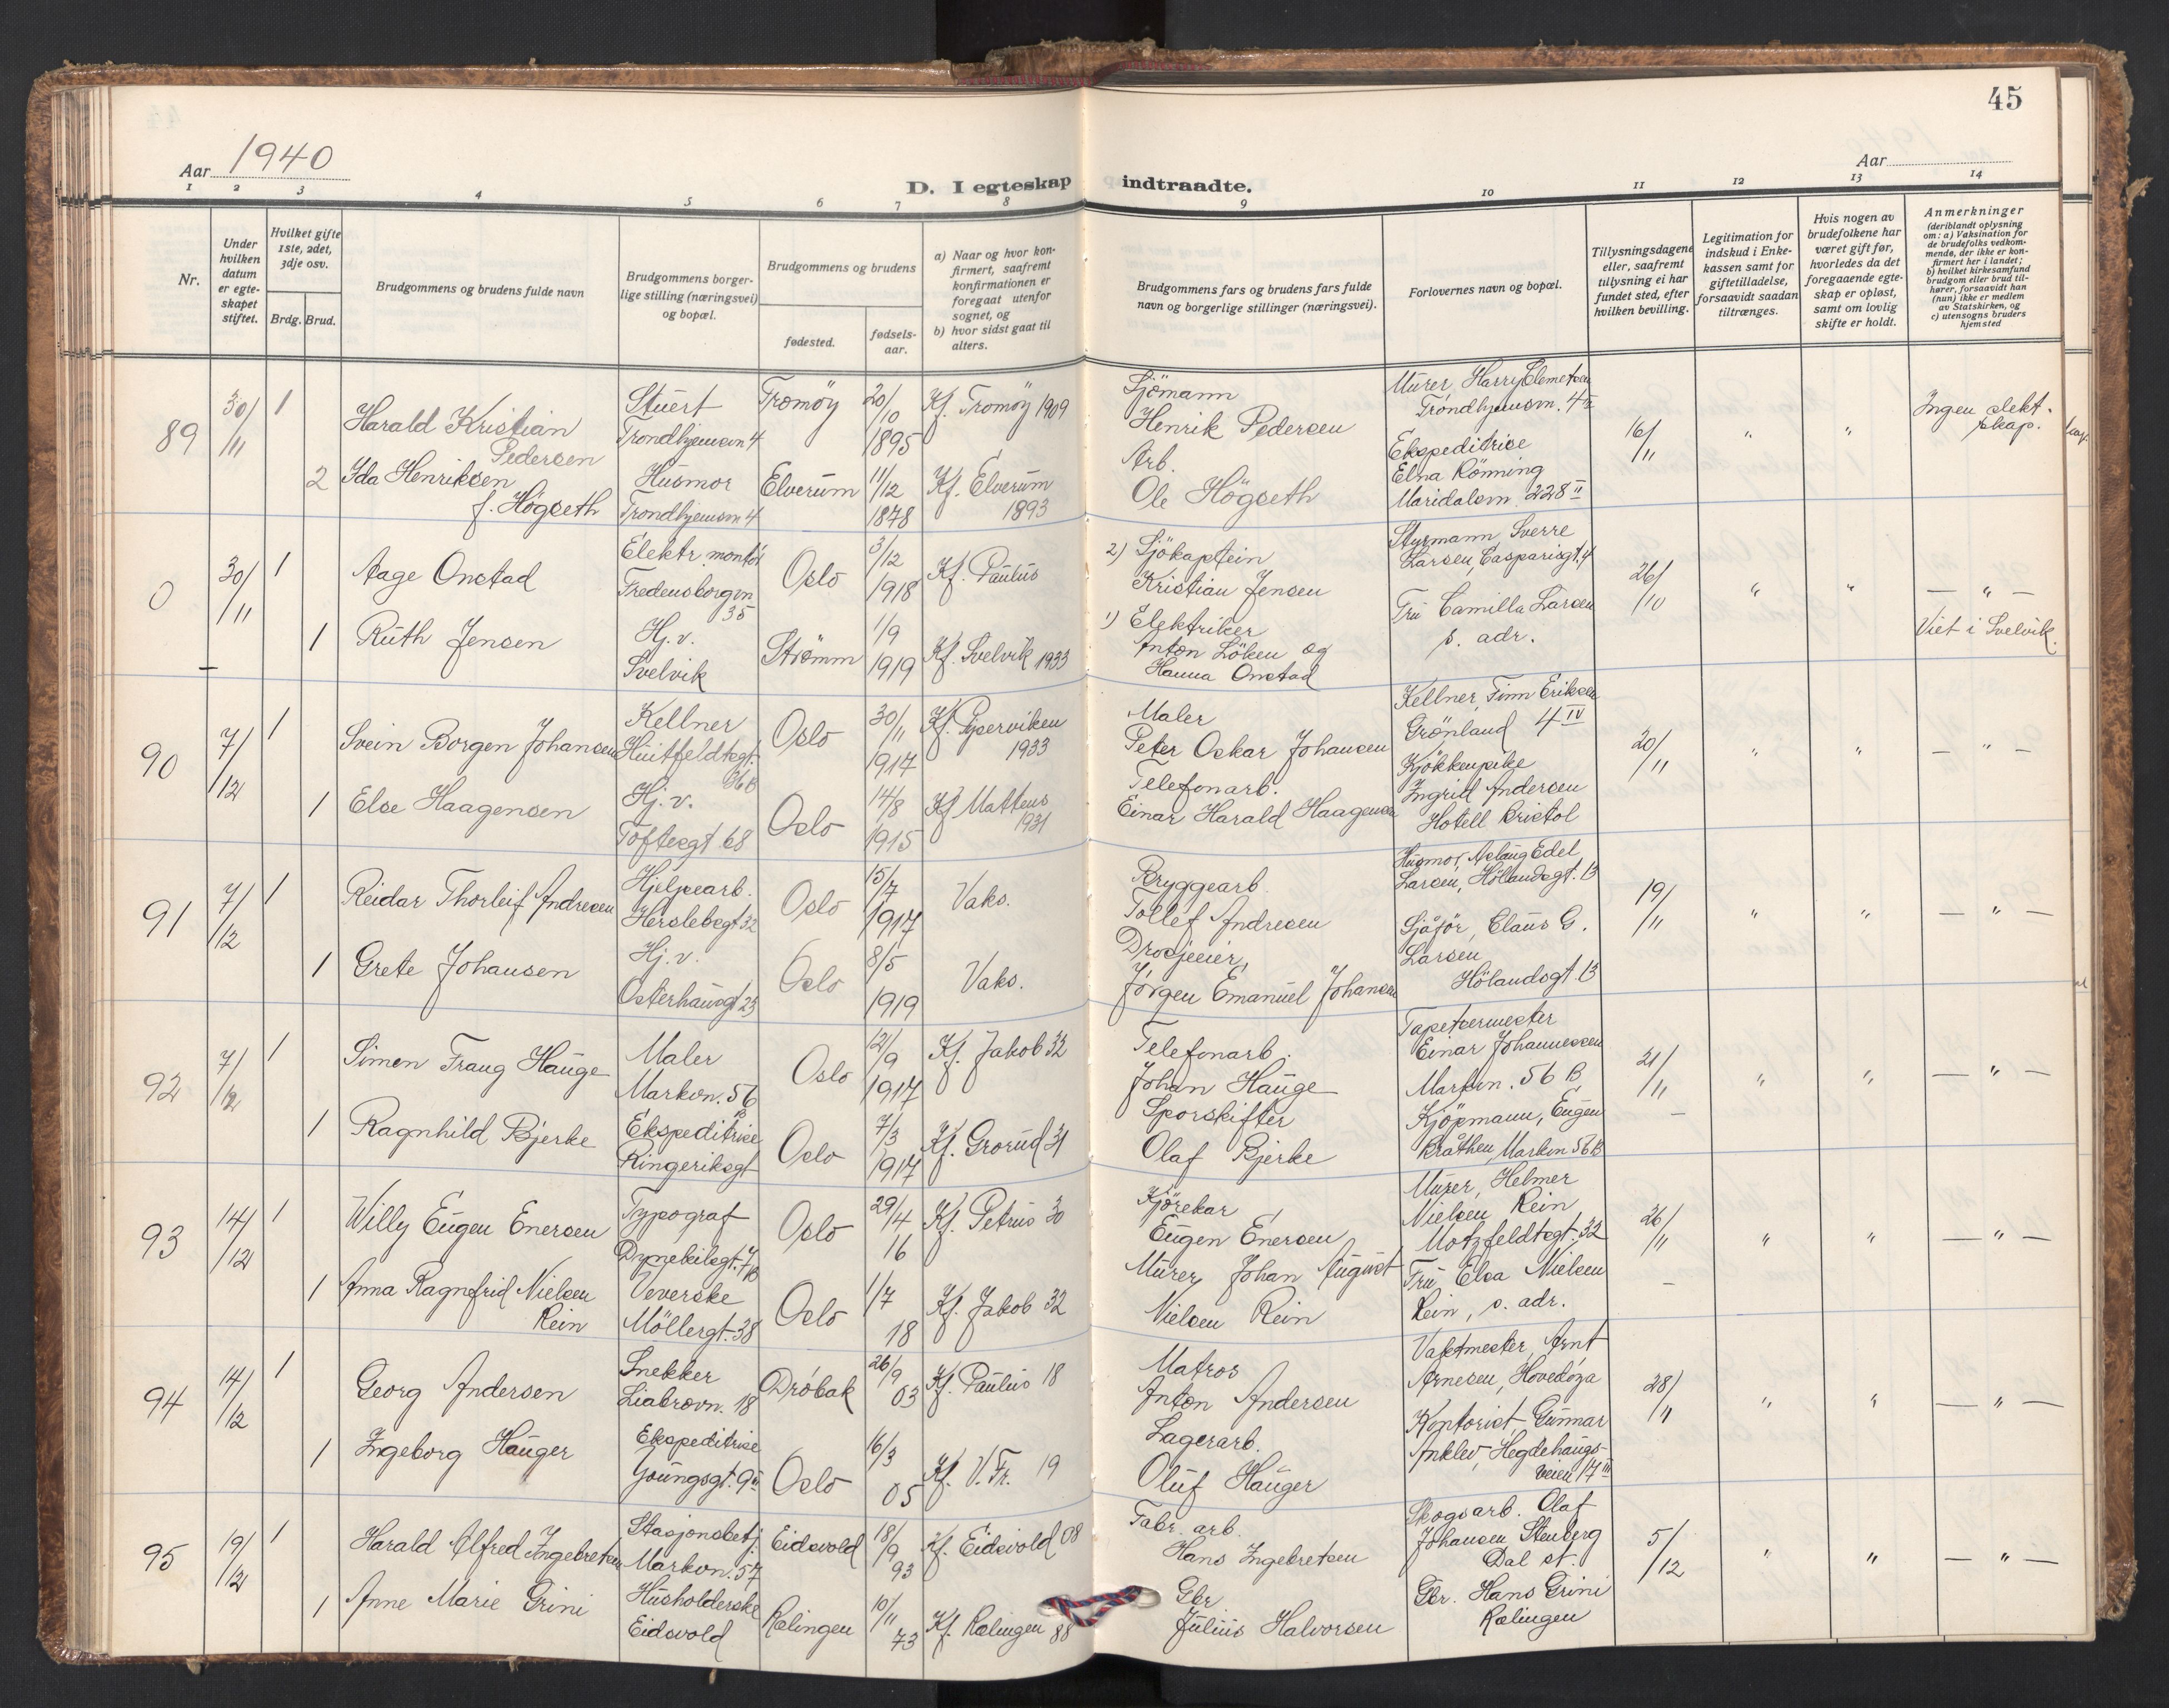 45
Aar 1940
Aar
D. I egteskap indtraadte.
1 2 3 4 5 6 7 8 9 10 11 12 13 14
Nr.
Under hvilken datum er egte-skapet stiftet.
Hvilket gifte 1ste, 2det, 3dje osv.
Brdg. Brud.
Brudgommens og brudens fulde navn
Brudgommens borger-lige stilling (næringsvei) og bopæl.
Brudgommens og brudens
fødested.
fødsels-aar.
a) Naar og hvor kon-firmert, saafremt konfirmationen er foregaat utenfor sognet, og
b) hvor sidst gaat til alters.
Brudgommens fars og brudens fars fulde navn og borgerlige stillinger (næringsvei).
Forlovernes navn og bopæl.
Tillysningsdagene eller, saafremt tillysning ei har fundet sted, efter hvilken bevilling.
Legitimation for indskud i Enke-kassen samt for giftetilladelse, forsaavidt saadan tiltrænges.
Hvis nogen av brudefolkene har været gift før, hvorledes da det foregaaende egte-skap er opløst, samt om lovlig skifte er holdt.
Anmerkninger
(deriblandt oplysning om: a) Vaksination for de brudefolks vedkom-mende, der ikke er kon-firmert her i landet; b) hvilket kirkesamfund brudgom eller brud til-hører, forsaavidt han (hun) ikke er medlem av Statskirken, og c) utensogns bruders hjemsted
89 30/11 1 Harald Kristian Pedersen Stuert Trondhjemsvn 4 Tromöy 20/10 1895 Kf. Tromöy 1909 Sjömann Henrik Pedersen Murer, Harry Clemetsen Trondhjemsvn. 4 III 16/11 " " Ingen slekt-skap.
2 Ida Henriksen f. Högseth Husmor Trondhjemsvn 4 Elverum 11/12 1878 Kf. Elverum 1893 Arb. Ole Högseth Ekspeditrise Elna Rönning Maridalsvn. 228 II
0 30/11 1 Aage Onstad Elektr. montör Fredensborgvn 35 Oslo 3/12 1918 Kf. Paulus 2) Sjökaptein Kristian Jensen Styrmann, Sverre Larsen, Casparisgt. 4 26/10 " " — " —
1 Ruth Jensen Hj. v. Svelvik Strömm 1/9 1919 Kf. Svelvik 1933 1) Elektriker Anton Löken og Hanna Onstad Fru Camilla Larsen s. adr. Viet i Svelvik.
90 7/12 1 Svein Borgen Johansen Kellner Huitfeldtsgt. Oslo 30/11 1917 Kf. Piperviken 1933 Maler Peter Oskar Johansen Kellner, Finn Eriksen Grönland 4 IV 20/11 " " — " —
1 Else Haagensen Hj. v. Toftesgt 68 Oslo 14/8 1915 Kf Matteus 1931 Telefonarb. Einar Harald Haagensen Kjökkenpike Ingrid Andersen Hotell Bristol
91 7/12 1 Reidar Thorleif Andresen Hjelpearb. Herslebsgt 32 Oslo 15/7 1917 Vaks. Bryggearb. Tollef Andresen Husmor, Aslaug Edel Larsen, Hölandsgt. 13 19/11 " " — " —
1 Grete Johansen Hj. v. Osterhausgt 23 Oslo 8/5 1919 Vaks. Drosjeeier, Jörgen Emanuel Johansen Sjåför, Claus G. Larsen Hölandsgt. 13
92 7/12 1 Simen Traug Hauge Maler Markvn. 56 B Oslo 12/9 1917 Kf. Jakob 32 Telefonarb. Johan Hauge Tapetsermester Einar Johannessen Markvn. 56 B 21/11 " " — " —
1 Ragnhild Bjerke Ekspeditrise Ringeriksgt Oslo 7/3 1917 Kf. Grorud 31 Sporskifter Olaf Bjerke Kjöpmann, Eugen Bråthen, Markvn 56 B
93 14/12 1 Willy Eugen Enersen Typograf Dynekilsgt. 7 B Oslo 29/4 16 Kf. Petrus 30 Kjörekar Eugen Enersen Murer, Helmer Nielsen Rein Motzfeldtsgt. 32 26/11 " " — " —
1 Anna Ragnfrid Nielsen Rein Veverske Möllergt. 38 Oslo 1/7 18 Kf. Jakob 32 Murer, Johan August Nielsen Rein Fru Elsa Nielsen Rein, s. adr.
94 14/12 1 Georg Andersen Snekker Liabrovn. 18 Dröbak 26/9 03 Kf. Paulus 18 Matros Anton Andersen Vaktmester, Arnt Arnesen, Hovedöya 28/11 " " — " —
1 Ingeborg Hauger Ekspeditrise Youngsgt. 9 II Oslo 16/3 05 Kf. V. Fr. 19 Lagerarb. Oluf Hauger Kontorist Gunnar Anklev, Hegdehaugs-veien 17 III
95 19/12 1 Harald Alfred Ingebretsen Stasjonsbetj. Markvn. 57 Eidsvold 18/9 93 Kf. Eidsvold 08 Fabr. arb. Hans Ingebretsen Skogsarb. Olaf Johansen Stenberg Dal st. 5/12 " " — " —
1 Anne Marie Grini Husholderske Eidsvold Rælingen 10/11 73 Kf. Rælingen 88 Gbr. Julius Halvorsen Gbr. Hans Grini Rælingen